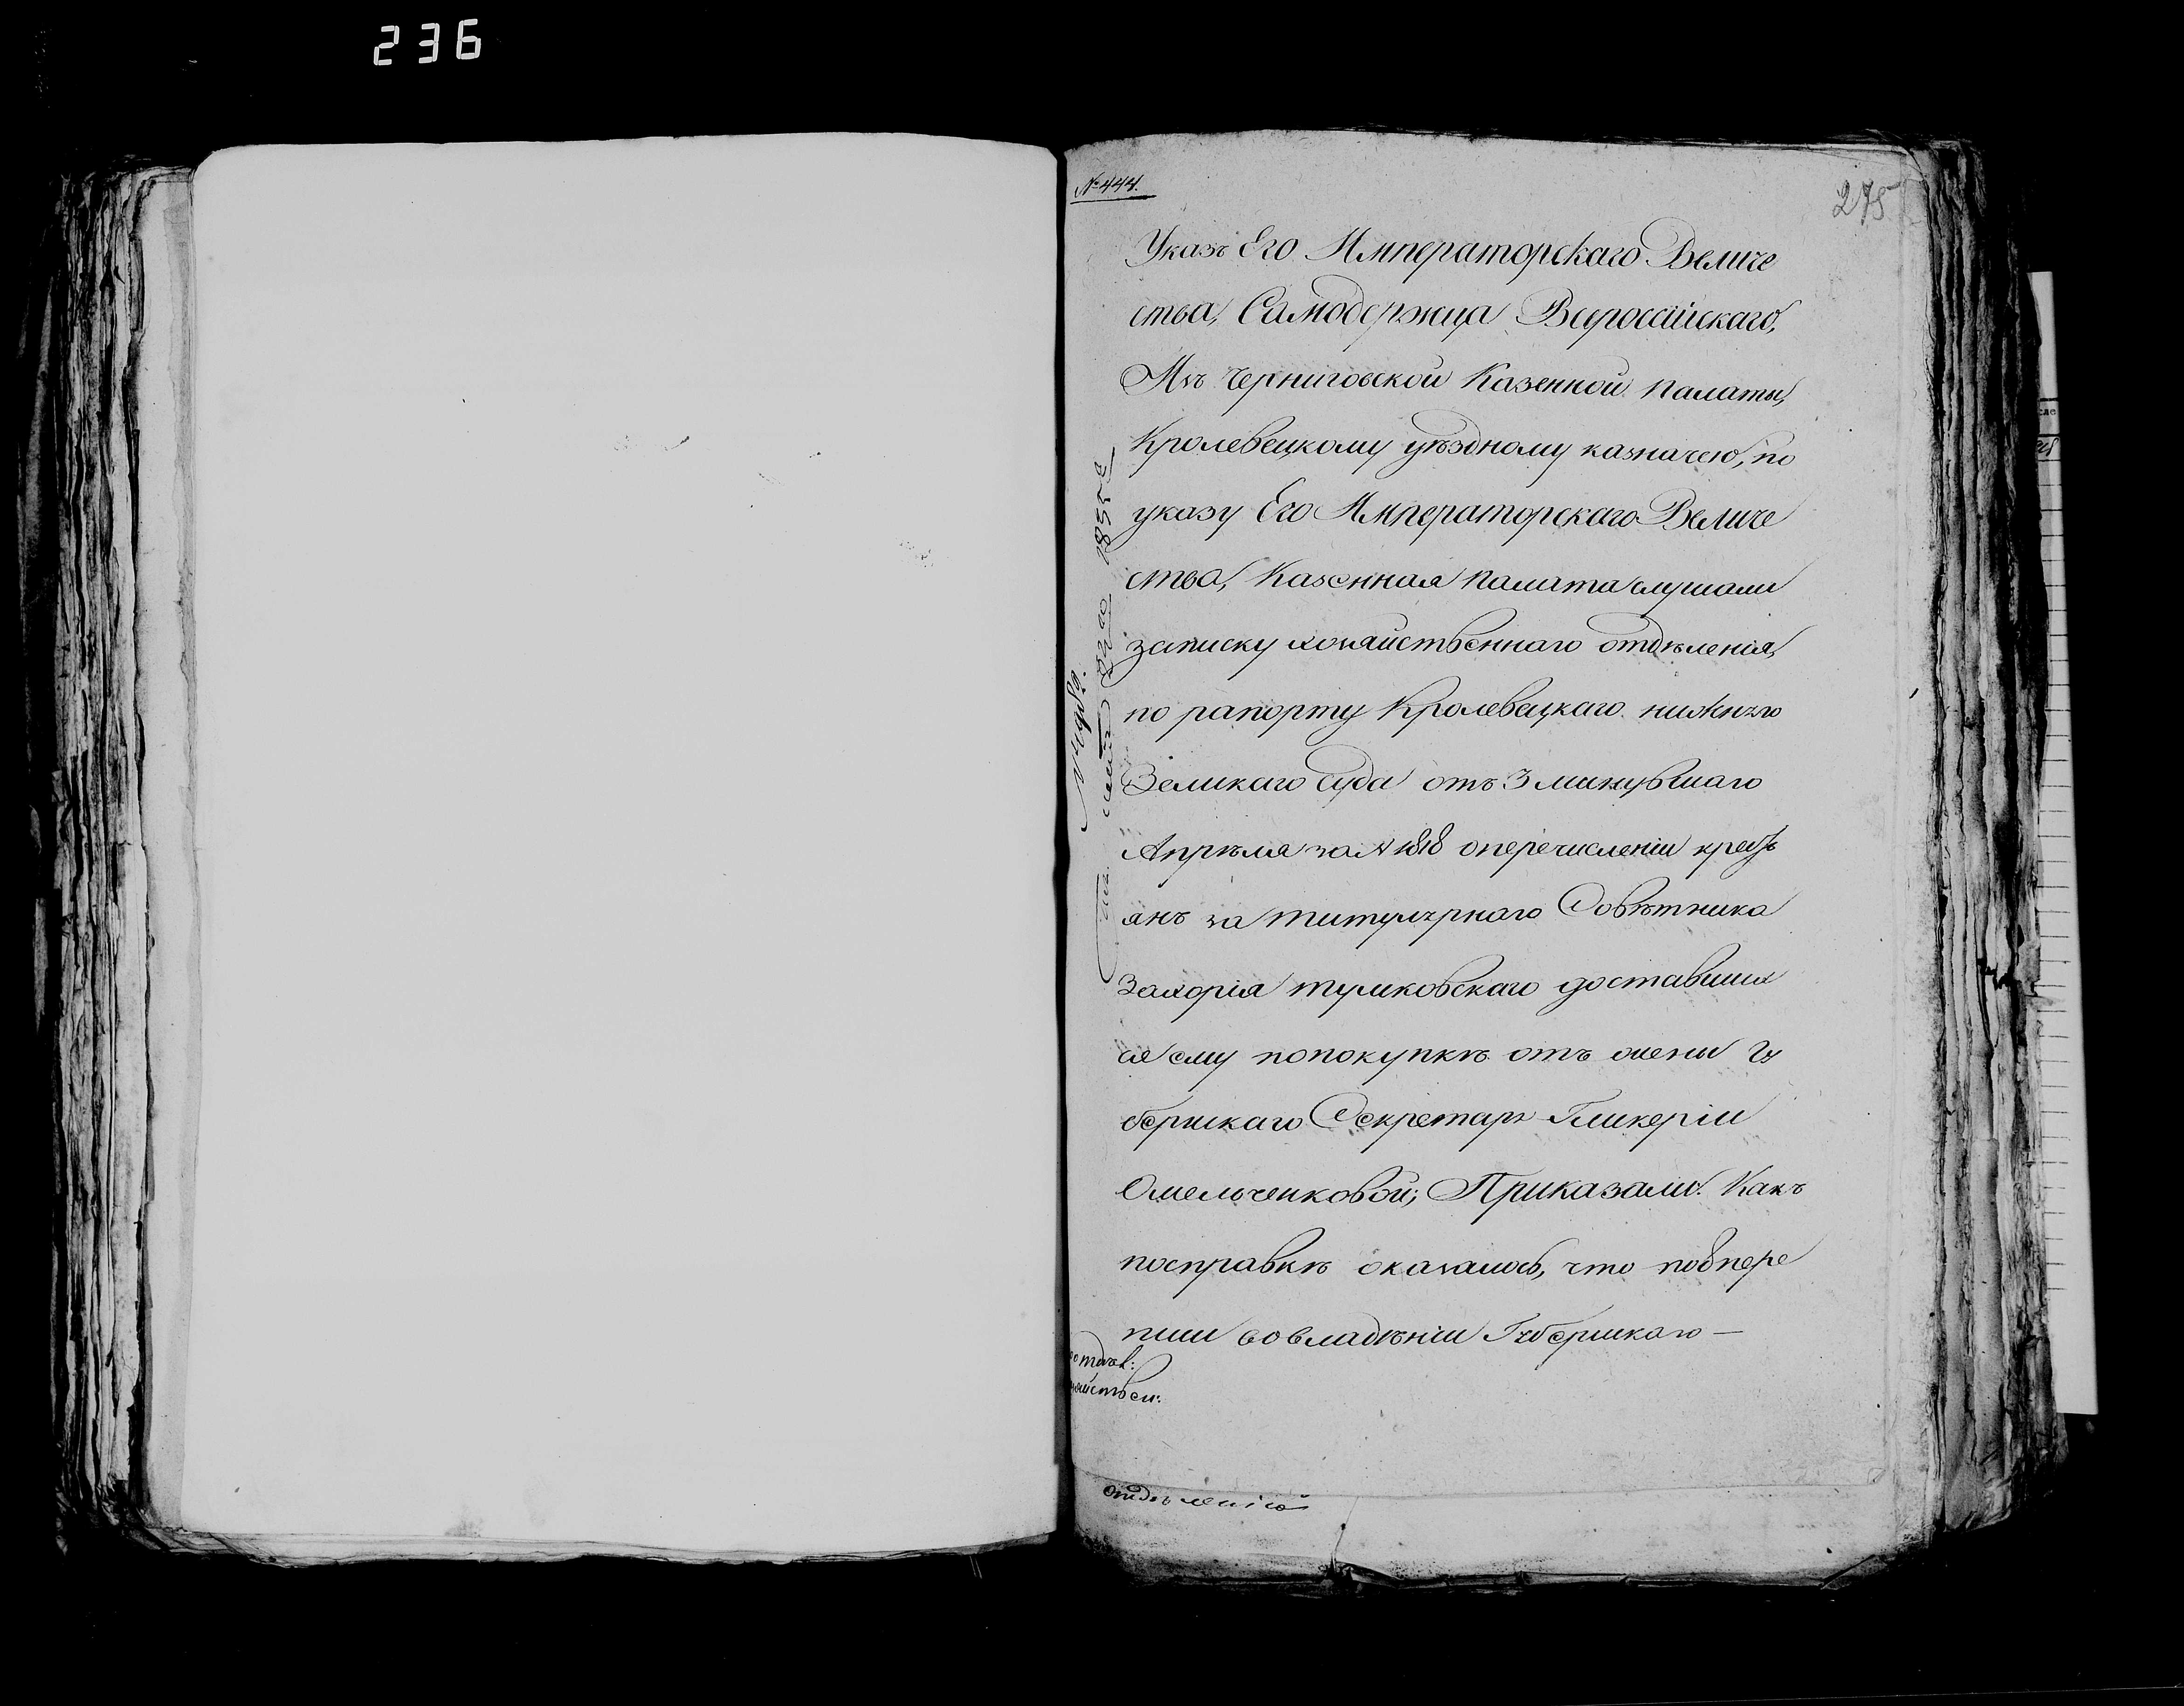 236
№ 444.
275
Указъ Его Императорскаго Величе
ства, Самодержца Всероссійскаго,
Изъ Черниговской Казенной Палаты,
Кролевецкому уѣздному казначею, по
указу Его Императорскаго Величе
ства, Казенная Палата слушали
записку хозяйственнаго отдѣленія,
по рапорту Кролевецкаго нижняго
Земскаго Суда отъ 3 минувшаго
Апрѣля за № 1818 о перечисленіи кресть
янъ за титулярнаго Совѣтника
Захорія Туликовскаго доставших
ся ему по покупкѣ отъ жены Гу
бернскаго Секретаря Гликеріи
Омельченковой; Приказали: Какъ
по справкѣ оказалось, что по 6 пере
писи во владѣніи Губернскаго —
отдѣл:
зяйствен:
отдѣленію